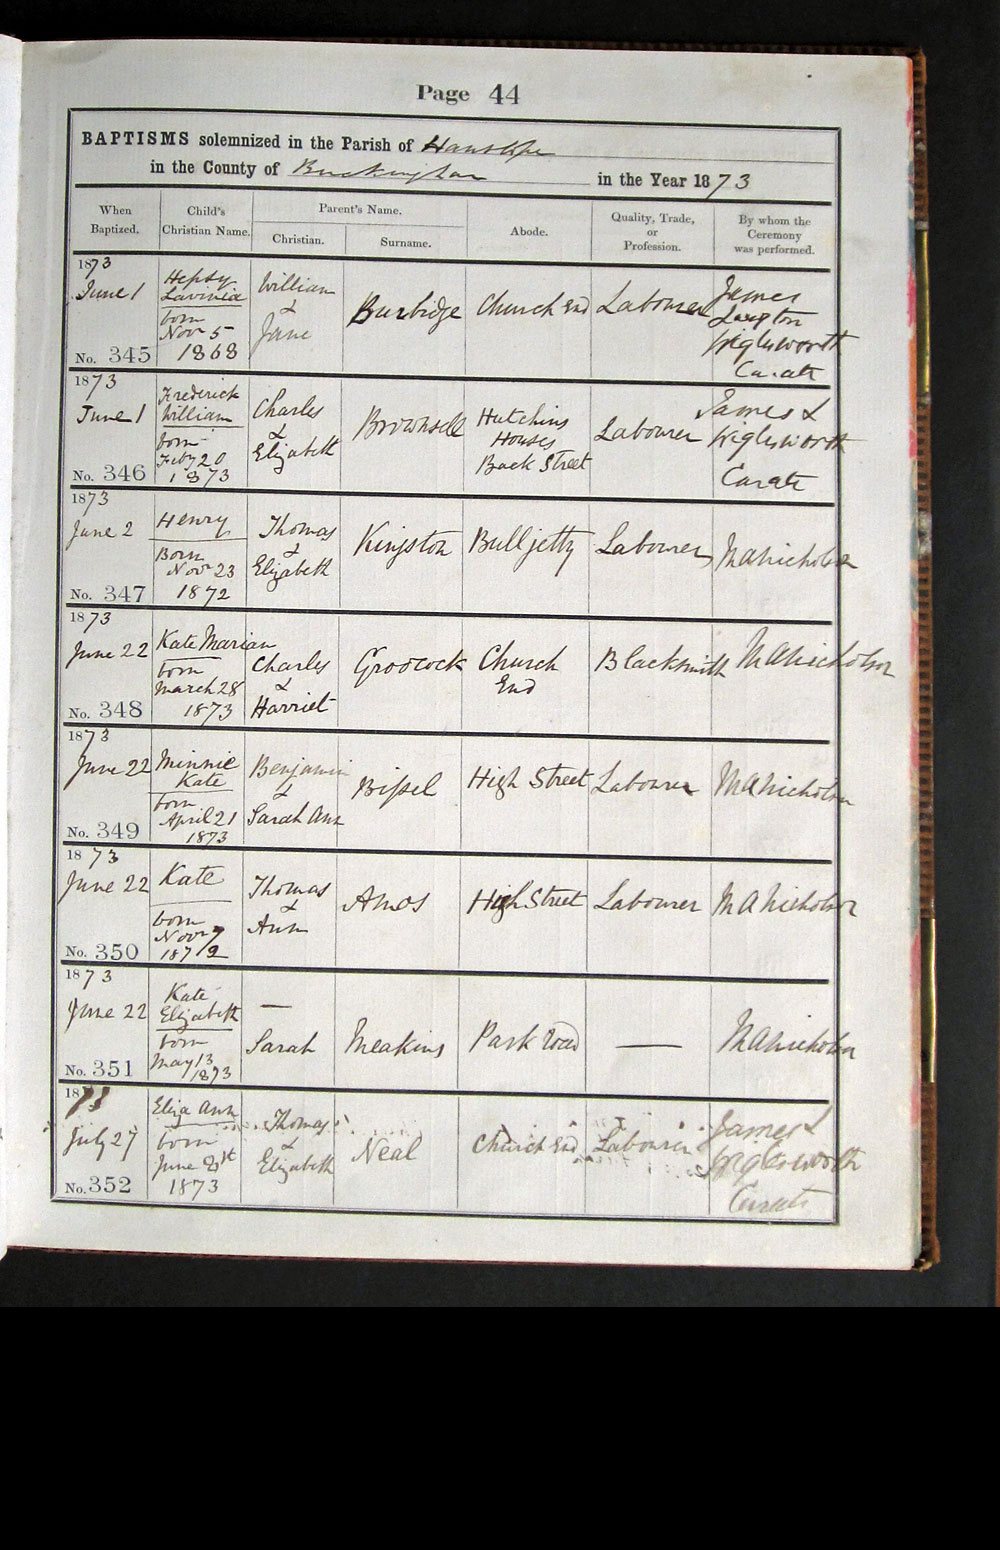 Page 44
BAPTISMS solemnized in the Parish of Hanslope
in the County of Buckingham in the Year 1873
When Baptized.
Child's Christian Name.
Parent's Name.
Christian.
Surname.
Abode.
Quality, Trade, or Profession.
By whom the Ceremony was performed.
1873
June 1
No. 345
Hepsy
Lavinia
born
Novr 5
1868
William
&
Jane
Burbidge
Church End
Labourer
James
Langton
Wiglesworth
Curate
1873
June 1
No. 346
Frederick
William
born
Feby 20
1873
Charles
&
Elizabeth
Brownsell
Hutchins
Houses
Back Street
Labourer
James L
Wiglesworth
Curate
1873
June 2
No. 347
Henry
Born
Novr 23
1872
Thomas
&
Elizabeth
Kingston
Bulljetty
Labourer
M A Nicholson
1873
June 22
No. 348
Kate Marian
born
March 28
1873
Charles
&
Harriet
Groocock
Church
End
Blacksmith
M A Nicholson
1873
June 22
No. 349
Minnie
Kate
born
April 21
1873
Benjamin
&
Sarah Ann
Bissel
High Street
Labourer
M A Nicholson
1873
June 22
No. 350
Kate
born
Novr 7
1872
Thomas
&
Ann
Amos
High Street
Labourer
M A Nicholson
1873
June 22
No. 351
Kate
Elizabeth
born
May 13
1873
—
Sarah
Meakins
Park Road
—
M A Nicholson
1873
July 27
No. 352
Eliza Ann
born
June
1873
Thomas
&
Elizabeth
Neal
Church End
Labourer
James L
Wiglesworth
Curate